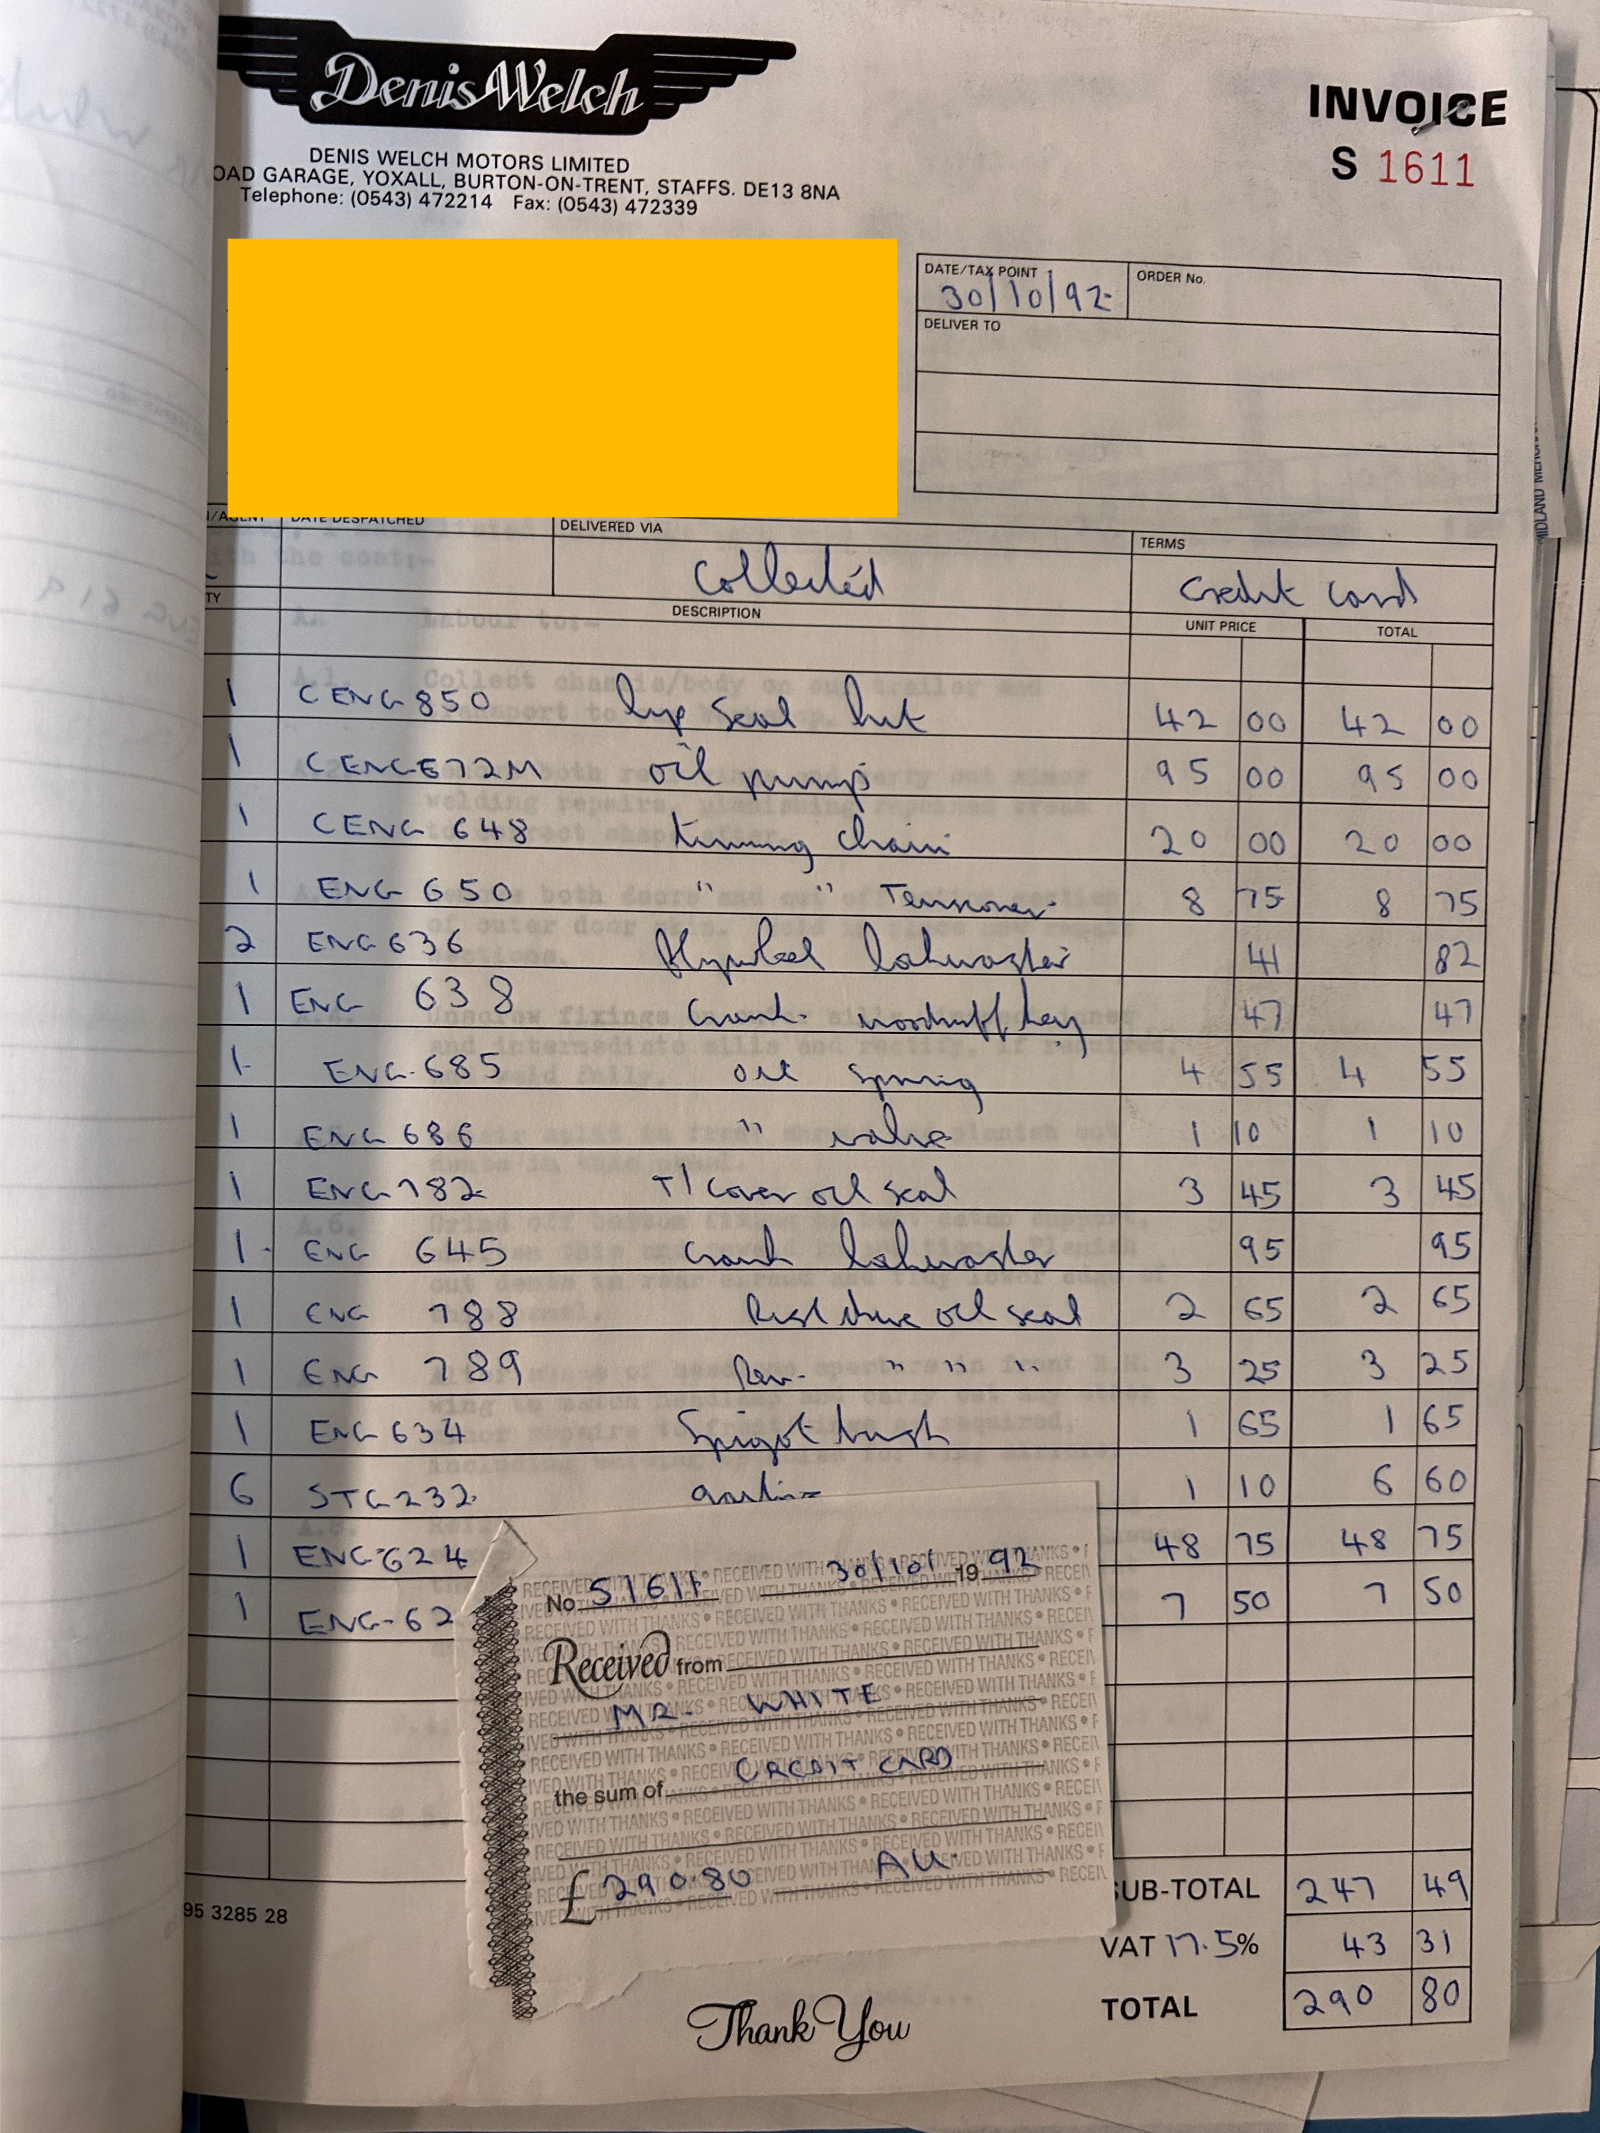 Denis Welch
INVOICE
S 1611
DENIS WELCH MOTORS LIMITED
OAD GARAGE, YOXALL, BURTON-ON-TRENT, STAFFS. DE13 8NA
Telephone: (0543) 472214 Fax: (0543) 472339
DATE/TAX POINT ORDER No.
30/10/92
DELIVER TO
DATE DESPATCHED DELIVERED VIA TERMS
Collected Credit Card
TY DESCRIPTION UNIT PRICE TOTAL
1 CENG 850 lip seal kit 42 00 42 00
1 CENG672M oil pump 95 00 95 00
1 CENG 648 timing chain 20 00 20 00
1 ENG 650 " " Tensioner 8 75 8 75
2 ENG 636 flywheel lockwasher 41 82
1 ENG 638 Crank woodruff key 47 47
1 ENG 685 oil spring 4 55 4 55
1 ENG 686 " valve 1 10 1 10
1 ENG 782 T/cover oil seal 3 45 3 45
1 ENG 645 crank lockwasher 95 95
1 ENG 788 drive oil seal 2 65 2 65
1 ENG 789 Rev. " " " 3 25 3 25
1 ENG 634 Spigot bush 1 65 1 65
6 STG232 1 10 6 60
1 ENG 624 48 75 48 75
1 ENG-62 7 50 7 50
No S1611 30/10/ 19 92
Received from
MR. WHITE
CREDIT CARD
the sum of
£ 290.80 A.W.
RECEIVED WITH THANKS
95 3285 28
SUB-TOTAL 247 49
VAT 17.5% 43 31
TOTAL 290 80
Thank You